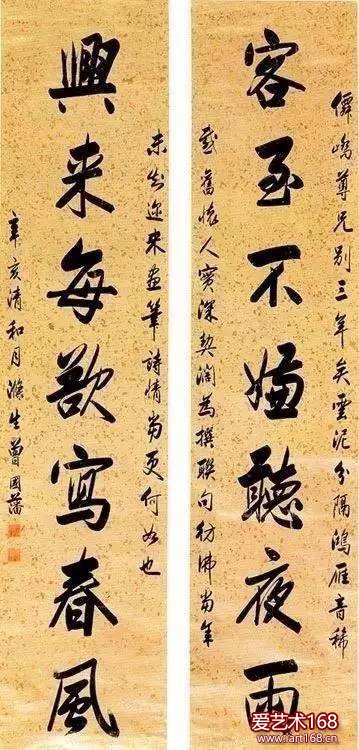 僊嶠尊兄别三年矣雲泥分隔鴻雁音稀
客至不嫌聽夜雨
感舊懷人實深契闊為撰聯句彷彿當年
未知迩来畫筆詩情當更何如也
興来每欲寫春風
辛亥清和月滌生曾國藩
爱艺术168
www.art168.cn